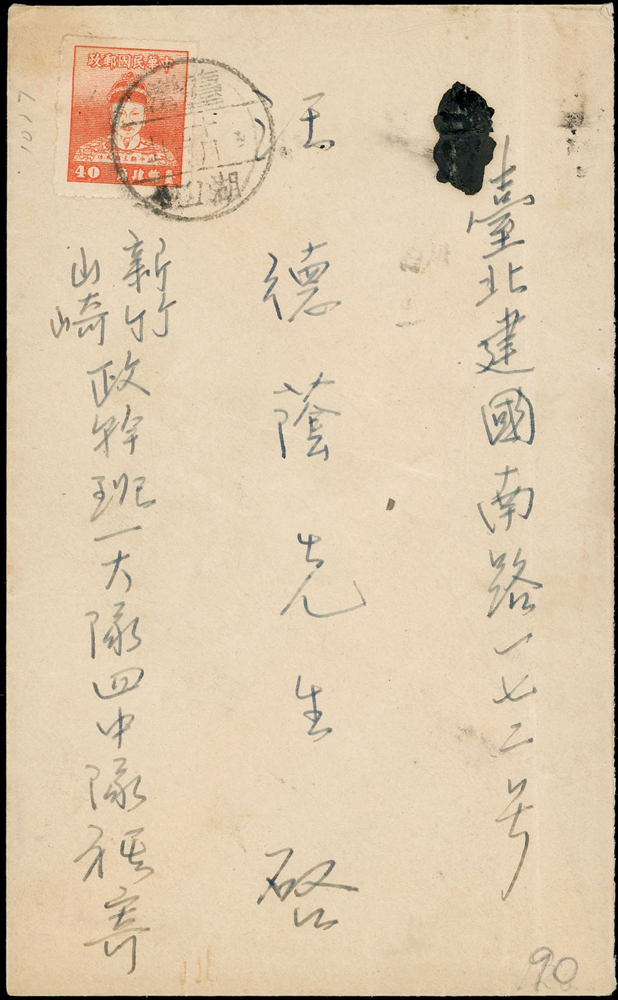 臺北建國南路一七二号
汪德蔭先生 啓
新竹
山崎
政幹班一大隊四中隊 寄
中華民國郵政
40
臺灣
湖
1017
90